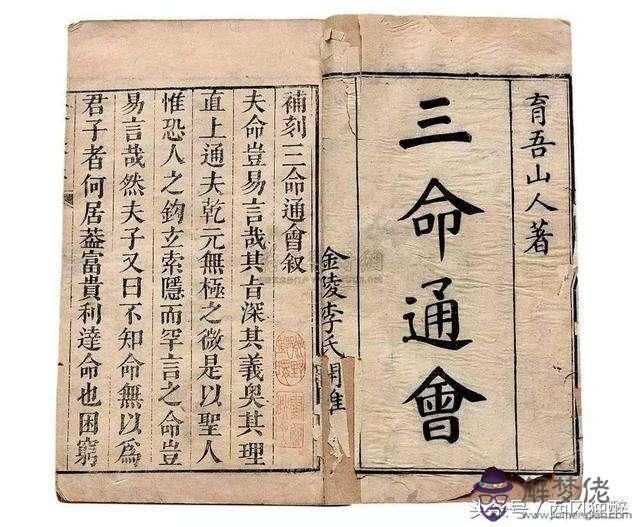 育吾山人著
三命通會
金陵李氏
補刻三命通會叙
夫命豈易言哉其旨深其義奥其理
直上通夫乾元無極之微是以聖人
惟恐人之鈎立索隱而罕言之命豈
易言哉然夫子又曰不知命無以爲
君子者何居葢富貴利達命也困窮
解梦佬
www.jiemenglao.com
头条号